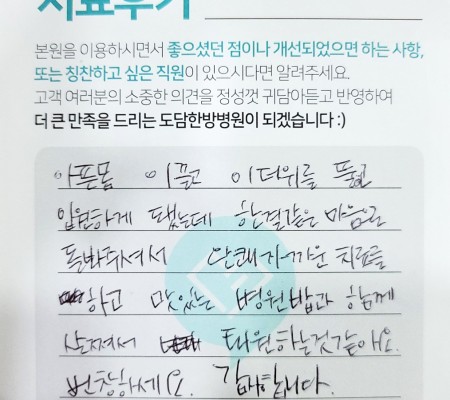 치료후기
본원을 이용하시면서 좋으셨던 점이나 개선되었으면 하는 사항,
또는 칭찬하고 싶은 직원이 있으시다면 알려주세요.
고객 여러분의 소중한 의견을 정성껏 귀담아듣고 반영하여
더 큰 만족을 드리는 도담한방병원이 되겠습니다 :)
아픈몸 이끌고 이더위를 뚫고
입원하게 됐는데 한결같은 마음으로
돌봐주셔서 안쾌가까운 치료를
하고 맛있는 병원밥과 함께
살쪄서 퇴원하는것같아요.
번창하세요. 감사합니다.